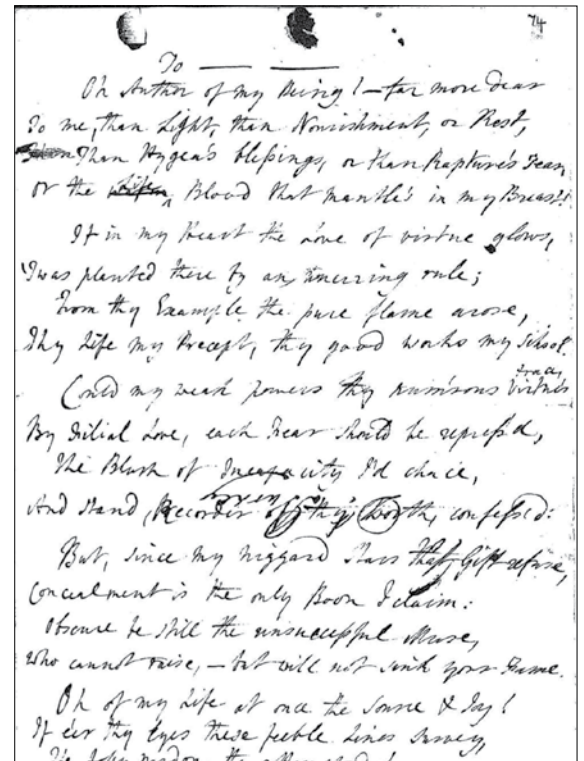 74
To — —
Oh Author of my Being! — far more dear
To me, than Light, than Nourishment, or Rest,
Than Hygea's blessings, or than Rapture's Tear,
Or the Blood that mantle's in my Breast!
If in my Heart the Love of virtue glows,
'Twas planted there by an unerring rule;
From thy Example the pure flame arose,
Thy Life my Precept, thy good works my School.
Could my weak powers thy num'rous Virtues trace,
By Filial Love, each Fear should be repress'd,
The Blush of Incapacity I'd chace,
And stand, Recorder of thy Worth, confess'd:
But, since my niggard stars that Gift refuse,
Concealment is the only Boon I claim:
Obscure be still the unsuccessful Muse,
Who cannot raise, — but will not sink your Fame.
Oh of my Life at once the source & Joy!
If e'er thy Eyes these feeble Lines survey,